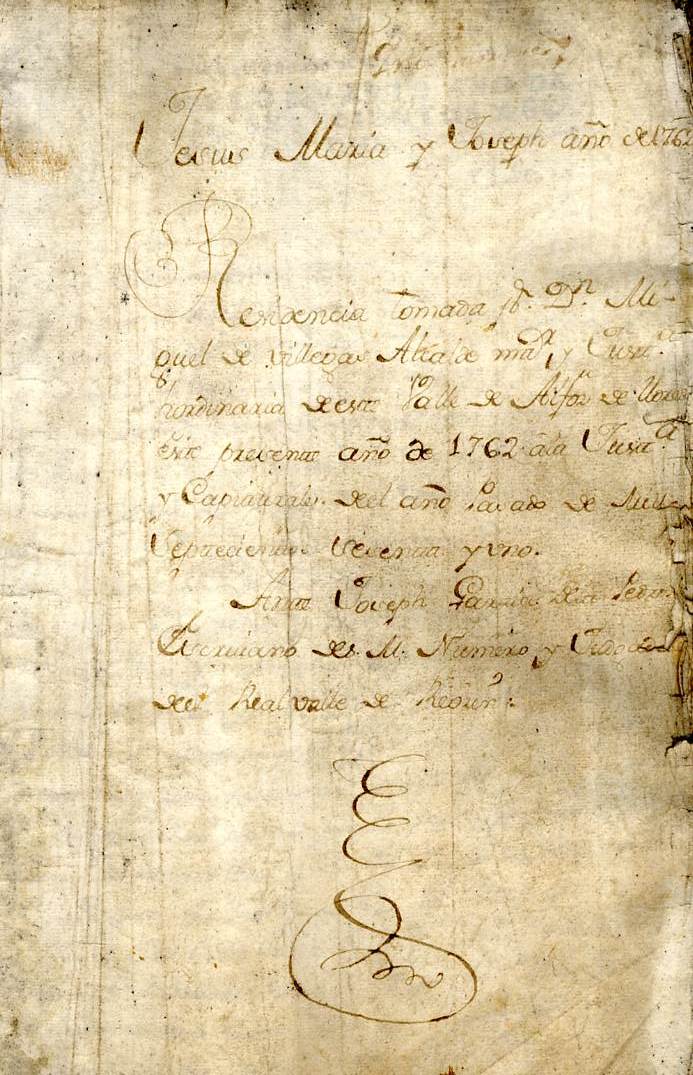 Jesus Maria y Joseph año de 1762
Residencia tomada pr. Dn. Mi-
guel de Villegas Alcalde maor. y Justª.
hordinaria de este Valle de Alfoz de Lloredo
este presente año de 1762 ala Justª.
y Capitulares del año Pasado de Mill
Septecientos sesenta y uno.
Ante Joseph Garcia dela
Escrivano de S. M. Numero, y
del Real valle de Reozin.